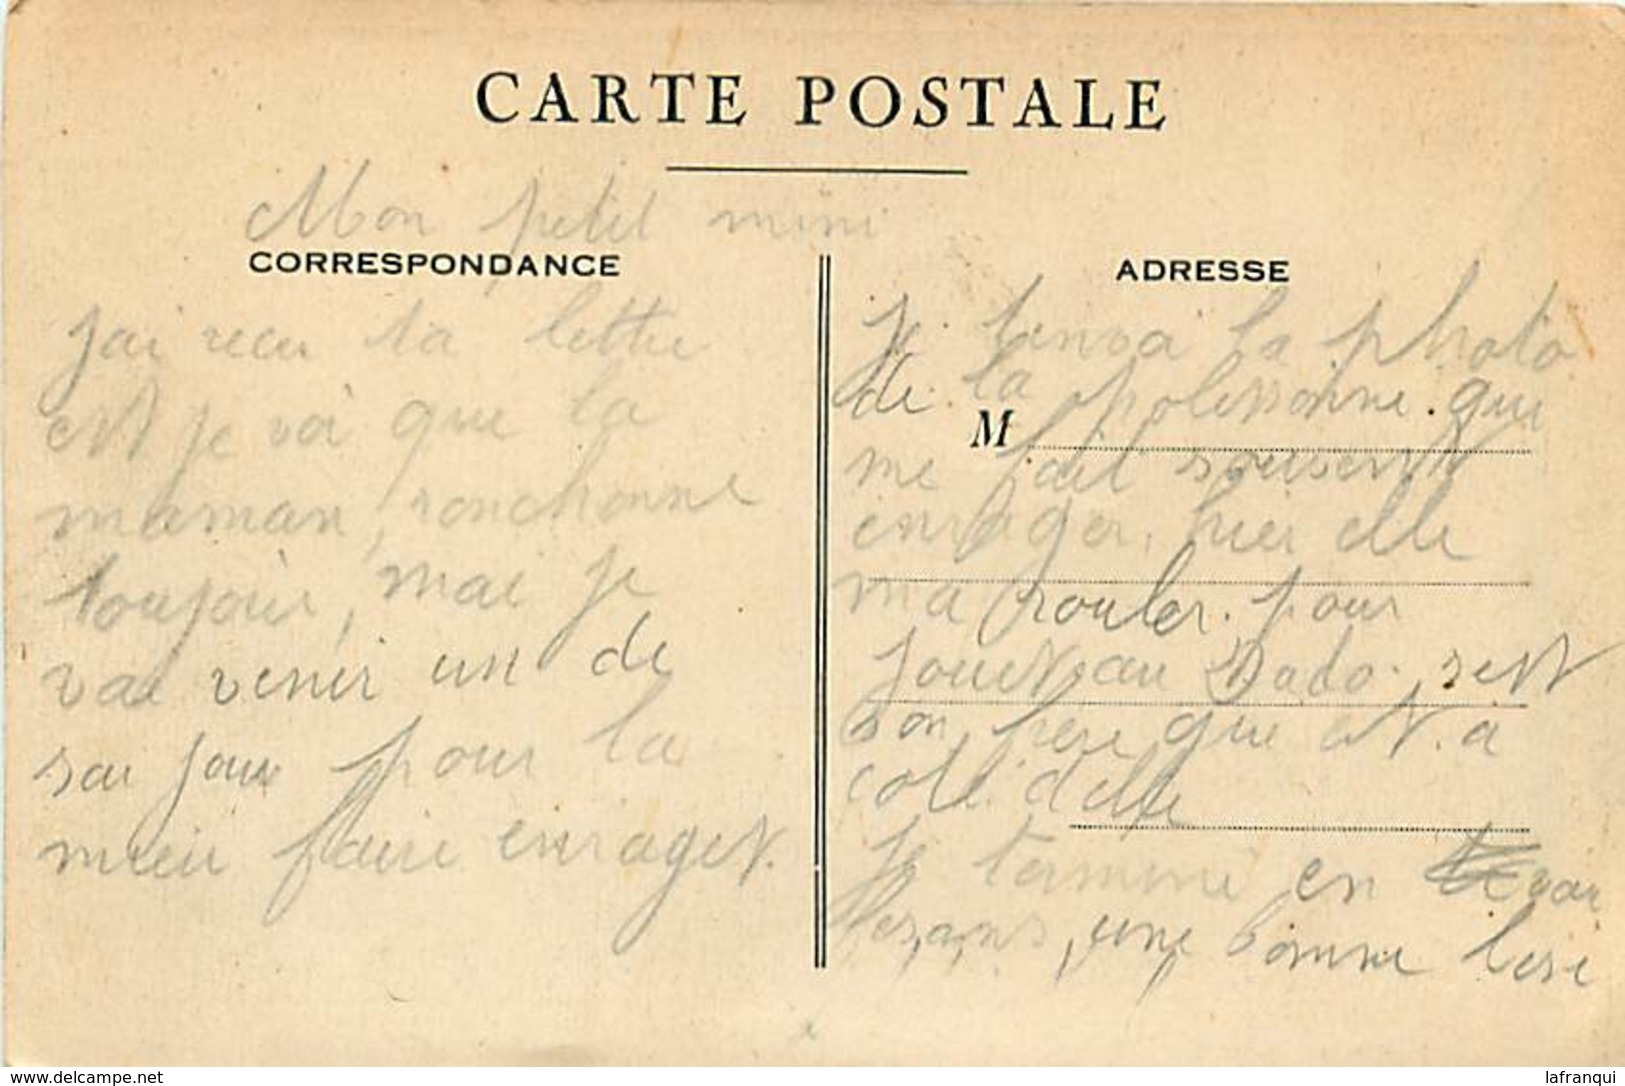 CARTE POSTALE
Mon petit mimi
CORRESPONDANCE
jai recu ta lettre
est je voi que la
maman, ronchonne
toujour, mai je
vai venir un de
sai jour pour la
mieu faire enraget.
ADRESSE
Je tenvoi la photo
de la polissonne que
M
me fait souvent
enrager, hier elle
ma rouler pour
jouet au Dado. sest
son pere que est a
coté delle
Je termine en
une bonne
www.delcampe.net
lafranqui